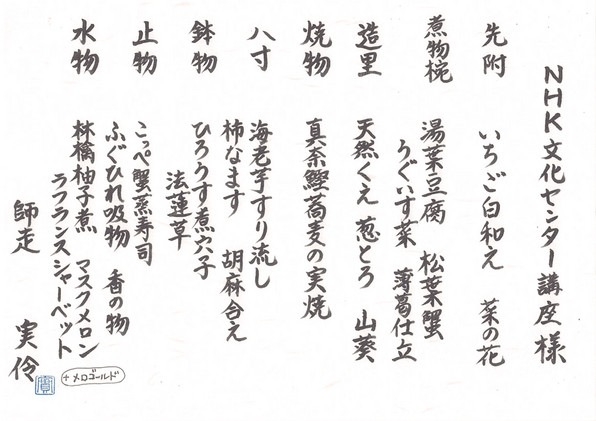 NHK文化センター講座様
先附 いちご白和え 菜の花
煮物椀 湯葉豆腐 松葉蟹
うぐいす菜 薄葛仕立
造里 天然くえ 葱とろ 山葵
焼物 真奈鰹蕎麦の実焼
八寸 海老芋すり流し
柿なます 胡麻合え
鉢物 ひろうす煮穴子
法蓮草
止物 こっぺ蟹蒸寿司
ふぐひれ吸物 香の物
水物 林檎柚子煮 マスクメロン
ラフランスシャーベット
+メロゴールド
師走 実伶